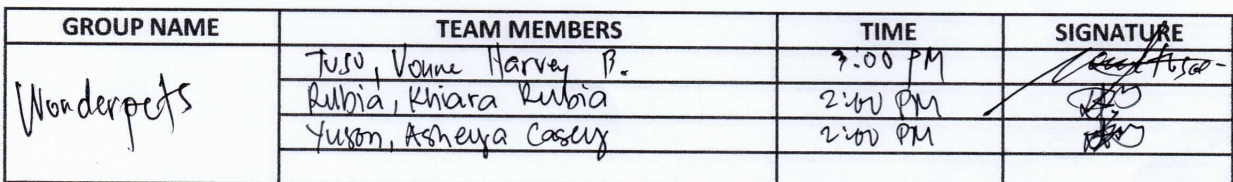 GROUP NAME TEAM MEMBERS TIME SIGNATURE
Wonderpets
Tuso, Vonne Harvey B. 2:00 PM
Rubia, Khiara Rubia 2:00 PM
Yuson, Asheya Casey 2:00 PM